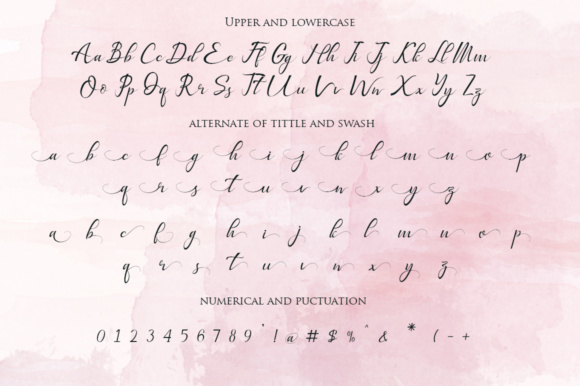 Upper and lowercase
Aa Bb Cc Dd Ee Ff Gg Hh Ii Jj Kk Ll Mm
Oo Pp Qq Rr Ss Tt Uu Vv Ww Xx Yy Zz
alternate of tittle and swash
a b c f g h i j k l m n o p
q r s t u v w x y z
a b c f g h i j k l m n o p
q r s t u v w x y z
numerical and puctuation
0 1 2 3 4 5 6 7 8 9 ' ! @ # $ % ^ & * ( - +